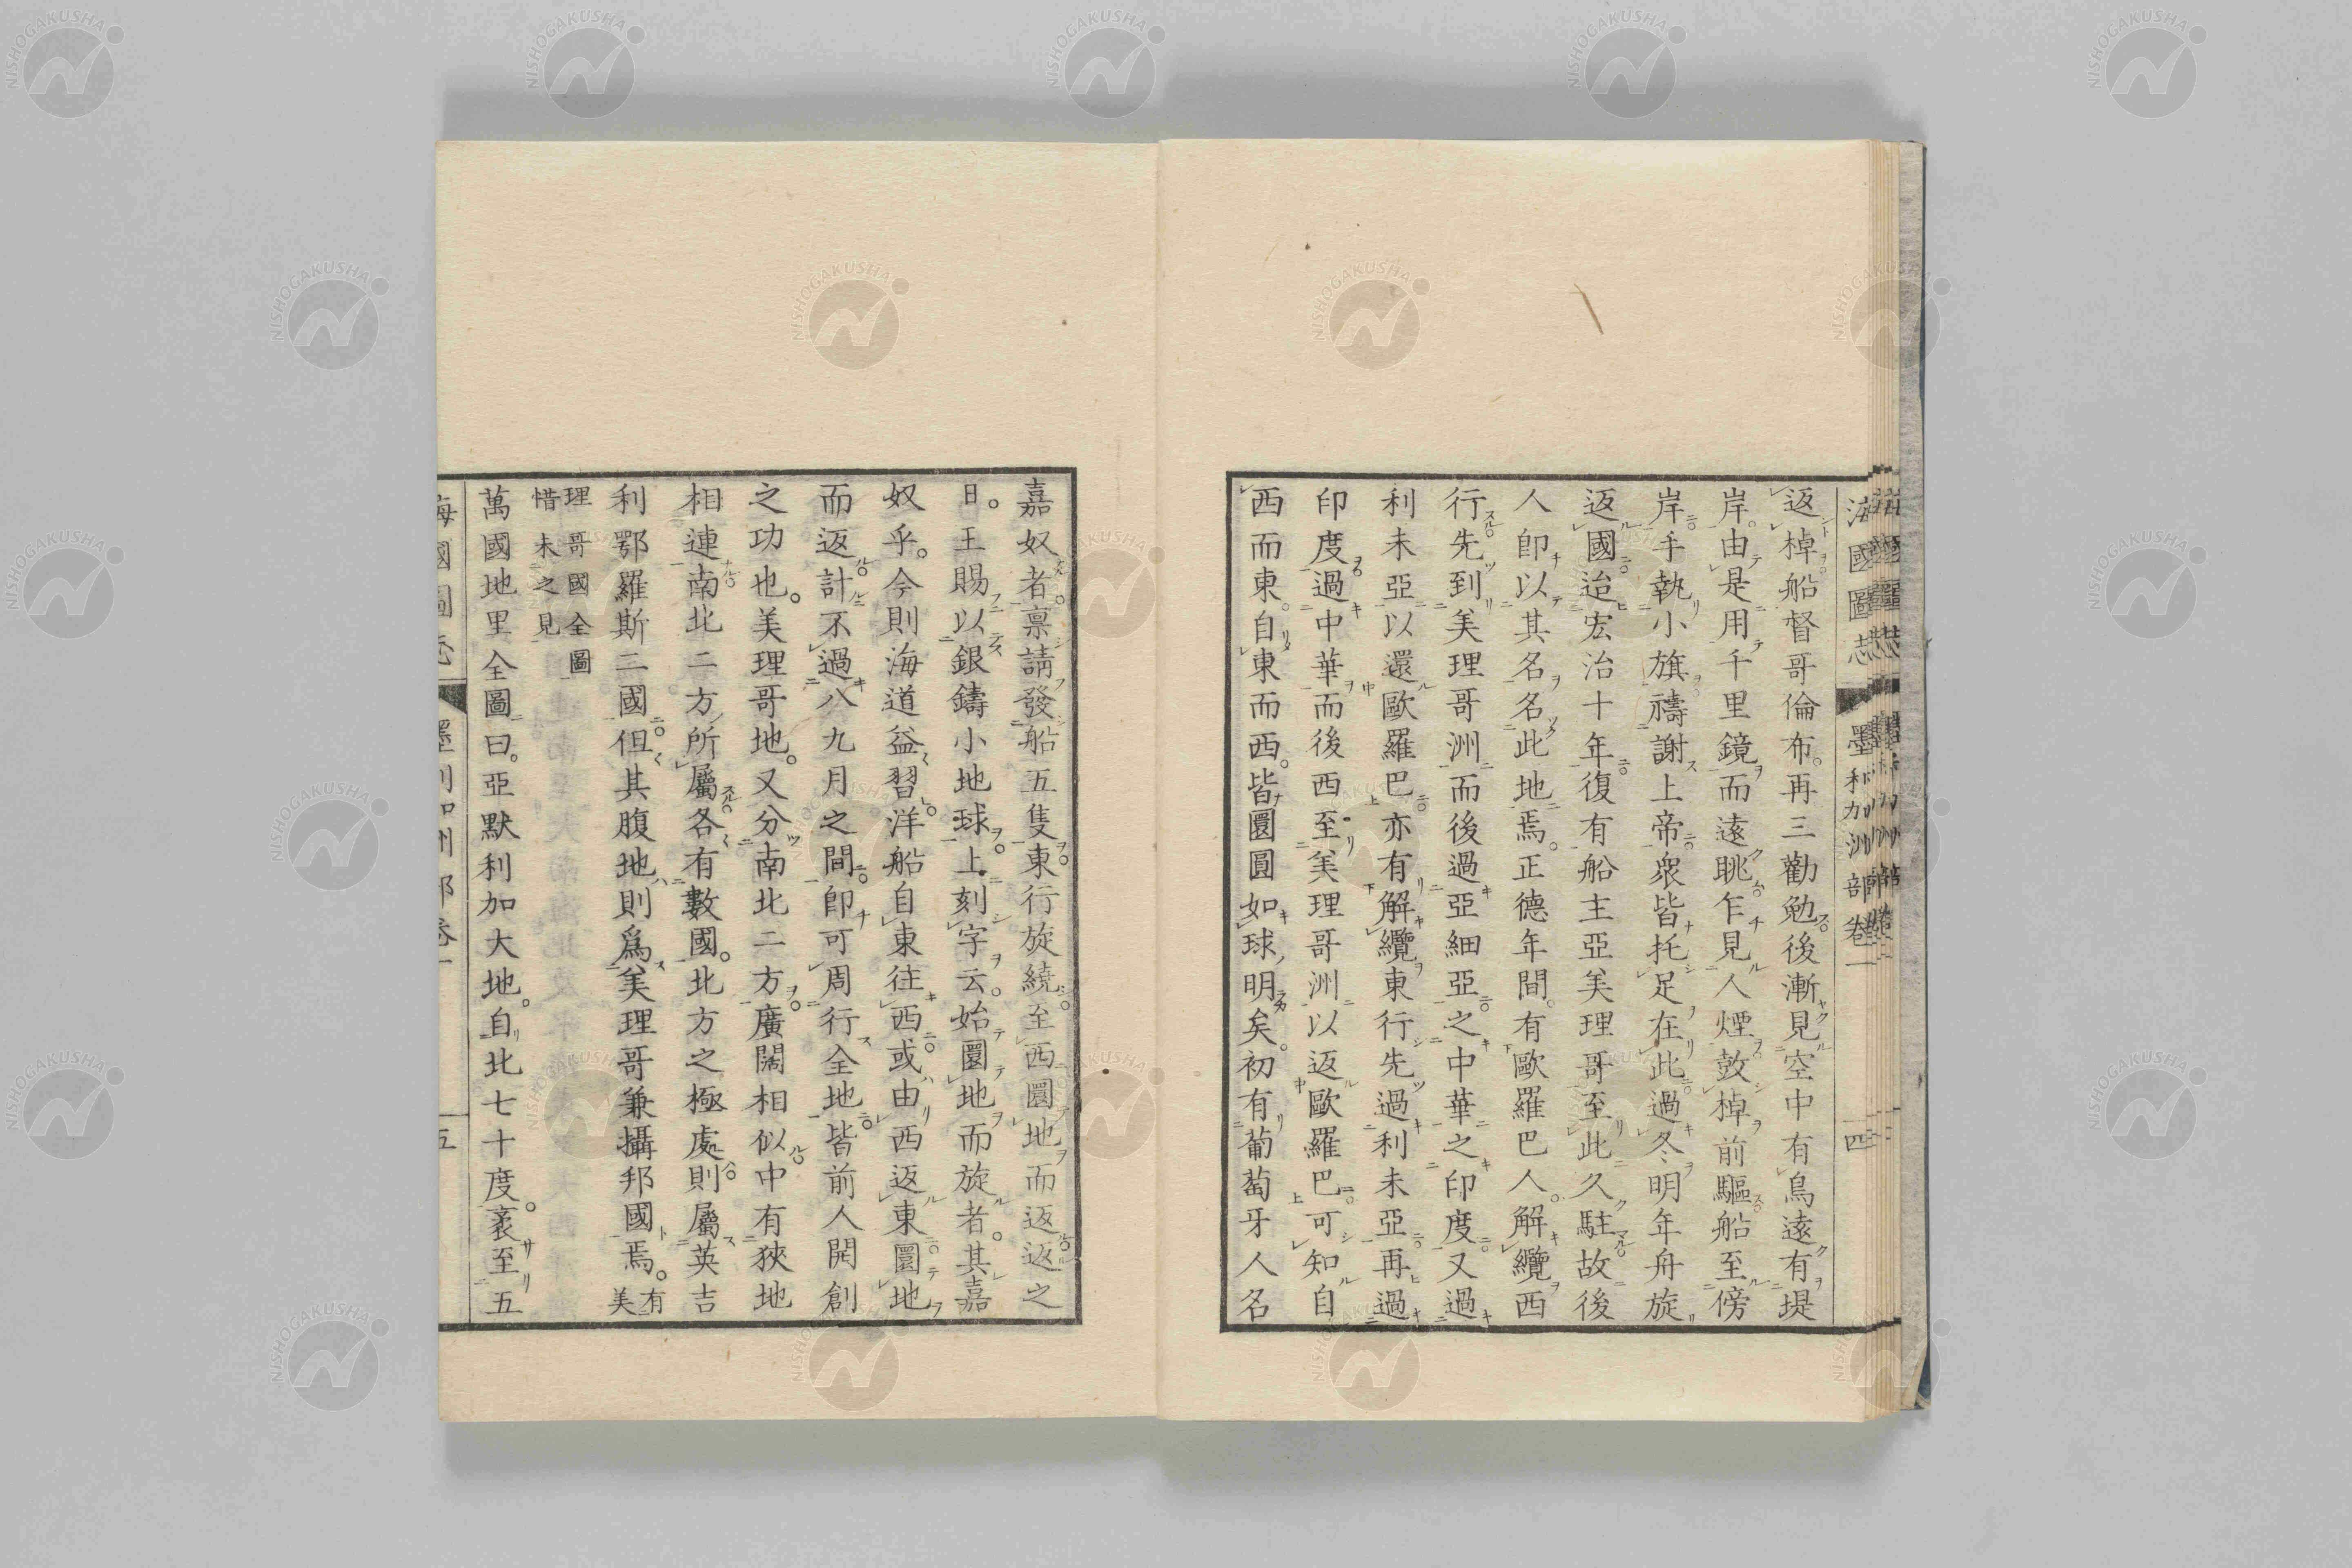 海國圖志 墨利加洲部卷一 四
返棹船督哥倫布。再三勸勉後漸見空中有鳥遠有堤
岸。由是用千里鏡而遠眺乍見人煙鼓棹前驅船至傍
岸手執小旗禱謝上帝衆皆托足在此過冬明年舟旋
返國迨宏治十年復有船主亞美理哥至此久駐故後
人卽以其名名此地焉。正德年間。有歐羅巴人。解纜西
行先到美理哥洲而後過亞細亞之中華之印度又過
利未亞以還歐羅巴亦有解纜東行先過利未亞再過
印度過中華而後西至美理哥洲以返歐羅巴可知自
西而東。自東而西。皆圜圓如球明矣。初有葡萄牙人名
嘉奴者。禀請發船五隻東行旋繞至西圜地而返返之
日。王賜以銀鑄小地球。上刻字云。始圜地而旋者。其嘉
奴乎。今則海道益習洋船自東往西或由西返東圜地
而返計不過八九月之間卽可周行全地皆前人開創
之功也。美理哥地。又分南北二方。廣闊相似中有狹地
相連南北二方所屬各有數國。北方之極處則屬英吉
利鄂羅斯二國但其腹地則爲美理哥兼攝邦國焉。有美
理哥國全圖
惜未之見
萬國地里全圖曰。亞默利加大地。自北七十度。袤至五
海國圖志 墨利加洲部卷一 五
NISHOGAKUSHA